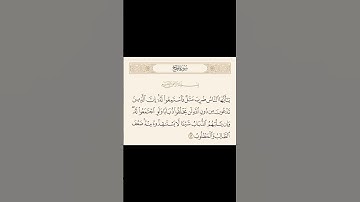 سورة الحج
يَـٰٓأَيُّهَا ٱلنَّاسُ ضُرِبَ مَثَلٌ فَٱسْتَمِعُوا۟ لَهُۥٓ إِنَّ ٱلَّذِينَ
تَدْعُونَ مِن دُونِ ٱللَّهِ لَن يَخْلُقُوا۟ ذُبَابًا وَلَوِ ٱجْتَمَعُوا۟ لَهُۥ
وَإِن يَسْلُبْهُمُ ٱلذُّبَابُ شَيْـًٔا لَّا يَسْتَنقِذُوهُ مِنْهُ ضَعُفَ
ٱلطَّالِبُ وَٱلْمَطْلُوبُ